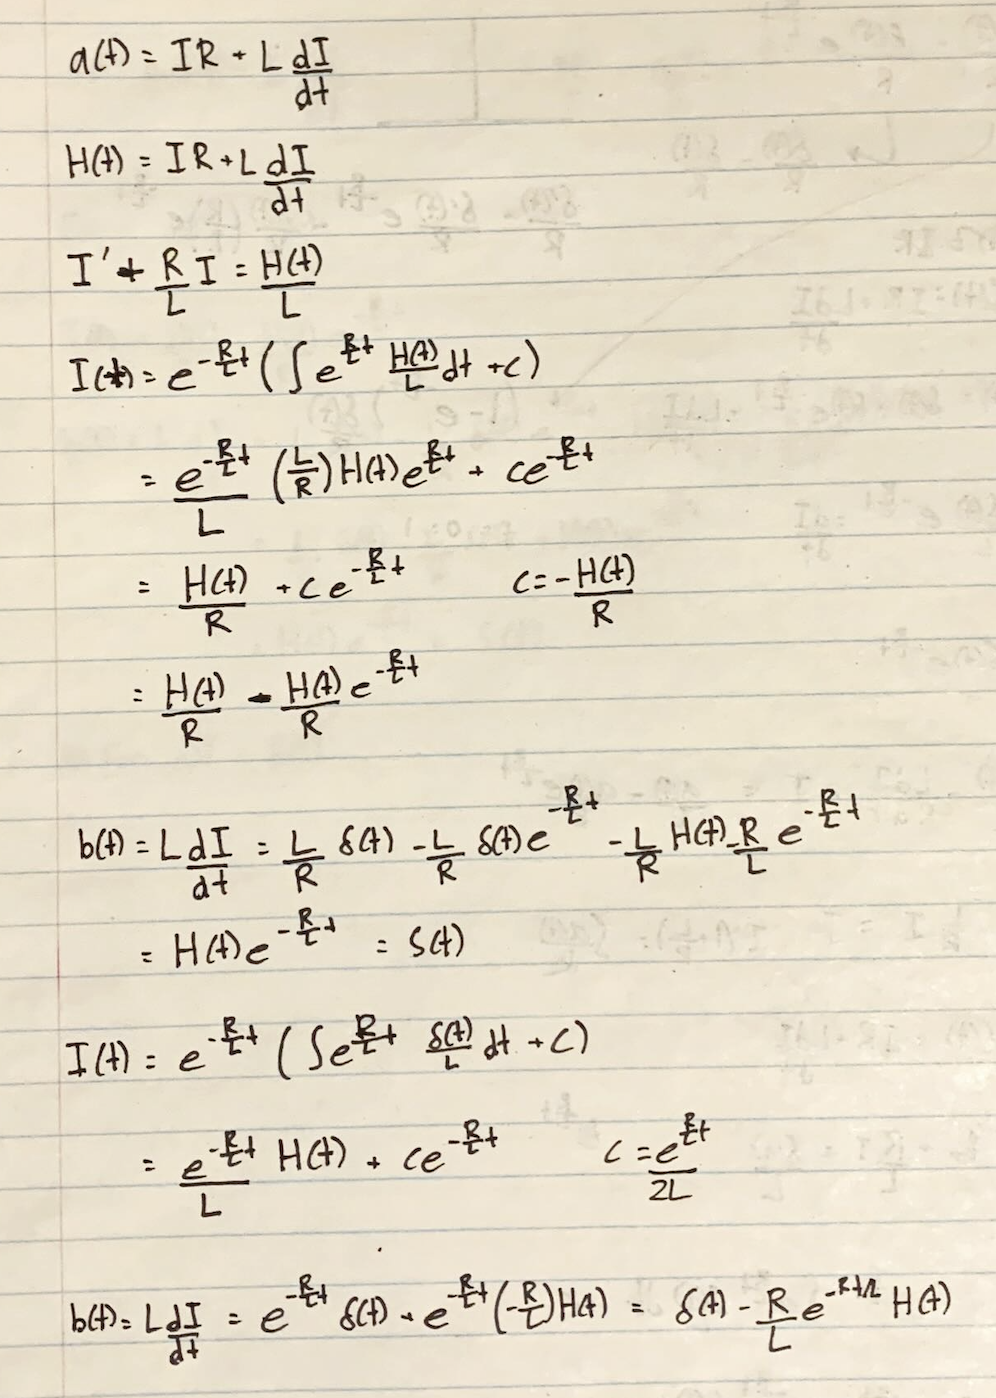 a(t) = IR + L dI/dt
H(t) = IR + L dI/dt
I' + R/L I = H(t)/L
I(t) = e^{-R/L t} ( ∫ e^{R/L t} H(t)/L dt + c )
= e^{-R/L t}/L (L/R) H(t) e^{R/L t} + ce^{-R/L t}
= H(t)/R + ce^{-R/L t} c = -H(t)/R
= H(t)/R - H(t)/R e^{-R/L t}
b(t) = L dI/dt = L/R δ(t) - L/R δ(t) e^{-R/L t} - L/R H(t) -R/L e^{-R/L t}
= H(t) e^{-R/L t} = S(t)
I(t) = e^{-R/L t} ( ∫ e^{R/L t} δ(t)/L dt + c )
= e^{-R/L t}/L H(t) + ce^{-R/L t} c = e^{R/L t}/2L
b(t) = L dI/dt = e^{-R/L t} δ(t) + e^{-R/L t} (-R/L) H(t) = δ(t) - R/L e^{-Rt/L} H(t)